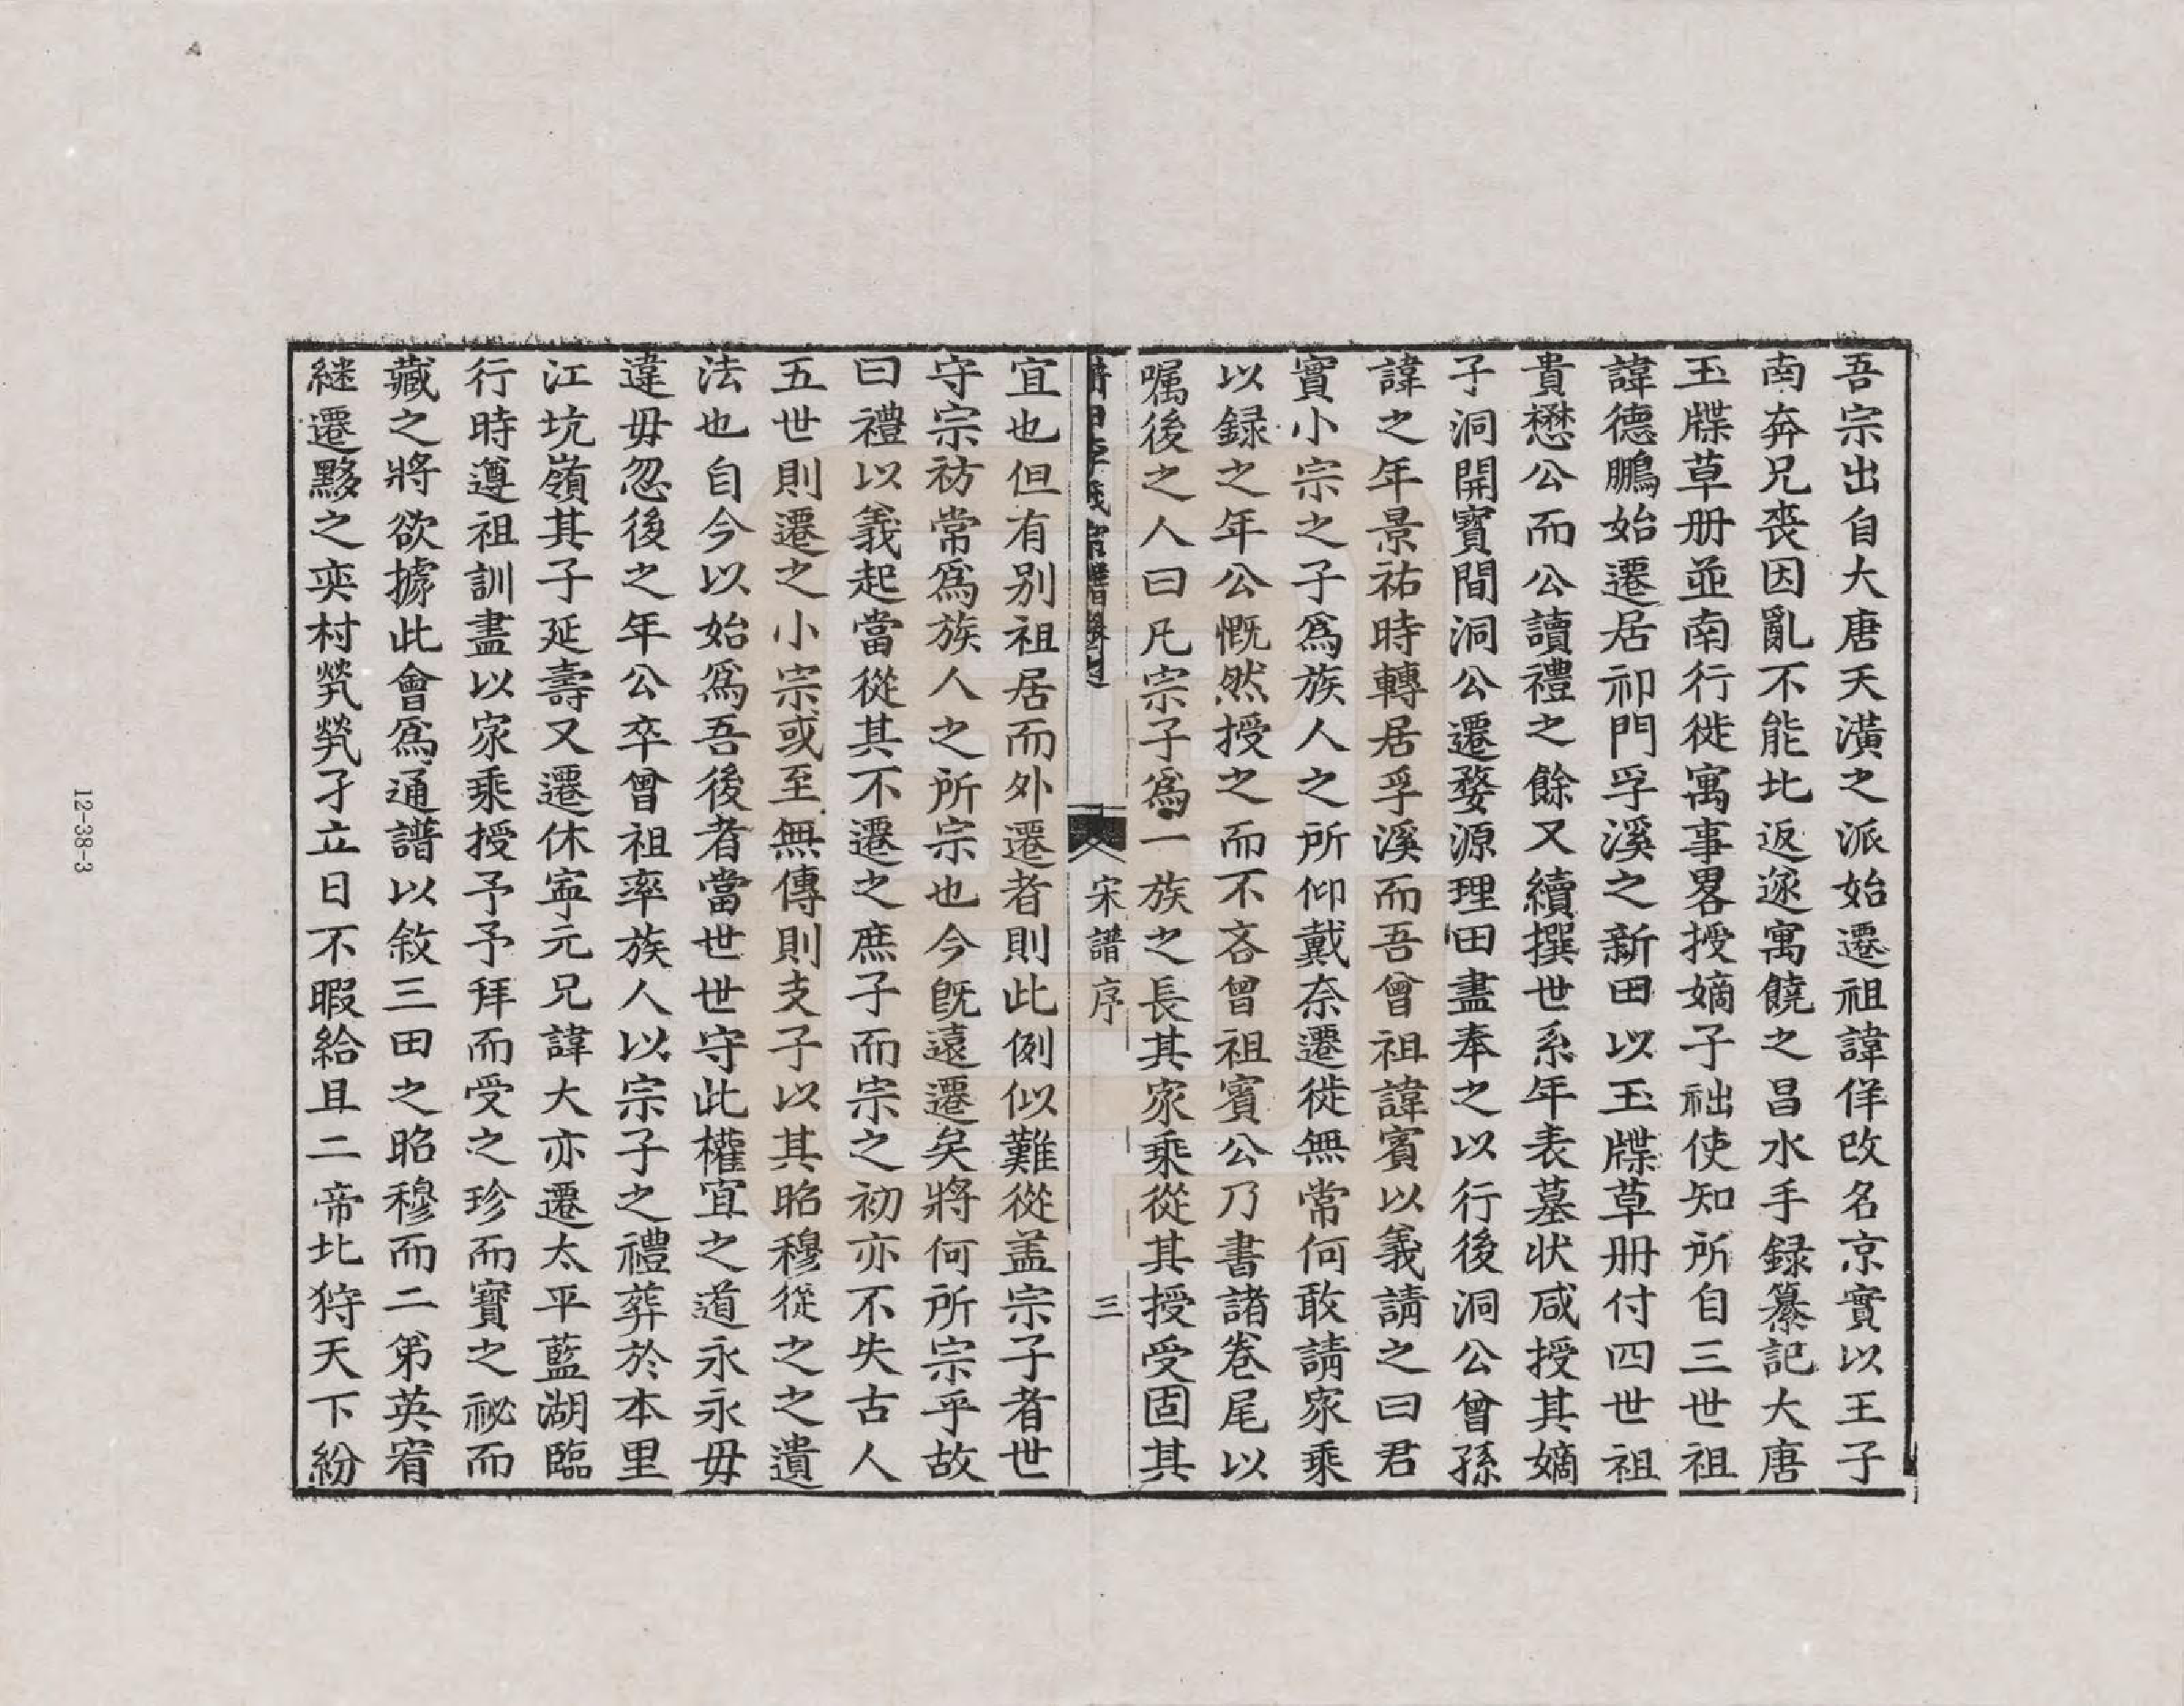 吾宗出自大唐天潢之派始遷祖諱佯改名京實以王子
南奔兄喪因亂不能北返遂寓饒之昌水手録纂記大唐
玉牒草册並南行徙寓事畧授嫡子祉使知所自三世祖
諱德鵬始遷居祁門孚溪之新田以玉牒草册付四世祖
貴懋公而公讀禮之餘又續撰世系年表墓状咸授其嫡
子洞開實間洞公遷婺源理田盡奉之以行後洞公曾孫
諱之年景祐時轉居孚溪而吾曾祖諱賓以義請之曰君
實小宗之子爲族人之所仰戴奈遷徙無常何敢請家乘
以録之年公慨然授之而不吝曾祖賓公乃書諸卷尾以
嘱後之人曰凡宗子爲一族之長其家乘從其授受固其
宋譜序
三
宜也但有别祖居而外遷者則此例似難從盖宗子者世
守宗祊常爲族人之所宗也今旣遠遷矣將何所宗乎故
曰禮以義起當從其不遷之庶子而宗之初亦不失古人
五世則遷之小宗或至無傳則支子以其昭穆從之之遺
法也自今以始爲吾後者當世世守此權宜之道永永毋
違毋忽後之年公卒曾祖率族人以宗子之禮葬於本里
江坑嶺其子延壽又遷休寜元兄諱大亦遷太平藍湖臨
行時遵祖訓盡以家乘授予予拜而受之珍而寶之祕而
藏之將欲據此會爲通譜以敘三田之昭穆而二第英宥
継遷黟之奕村煢煢孑立日不暇給且二帝北狩天下紛
12-38-3